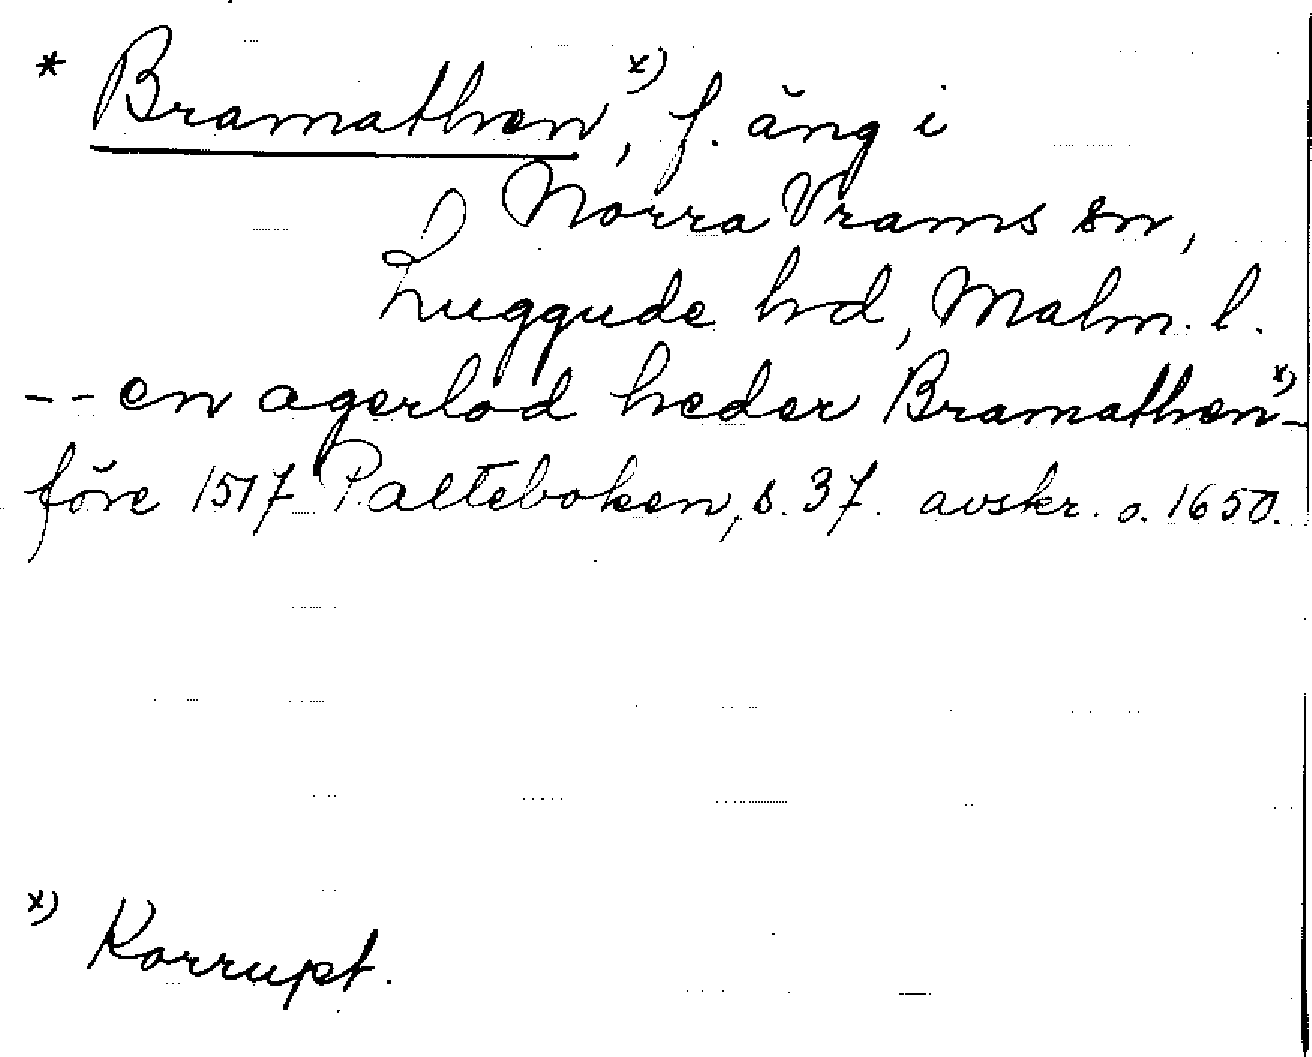 * Bramathen x), f. äng i
Norra Vrams sn,
Luggude hd, Malm. l.
-- en agerlod heder Bramathen x) -
före 1517 Palteboken, s. 37. avskr. o. 1650.
x) Korrupt.